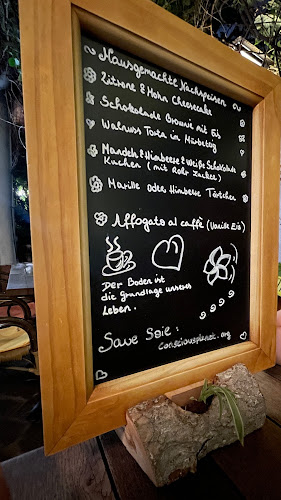 Hausgemachte Nachspeisen
Zitrone & Mohn Cheesecake
Schokolade Brownie mit Eis
Walnuss Torte in Mürbteig
Mandel & Himbeere & Weiße Schokolade
Kuchen (mit Rohr Zucker)
Marille oder Himbeere Törtchen
Affogato al caffè (Vanille Eis)
Der Boden ist
die Grundlage unseres
Leben.
Save Soil:
consciousplanet.org